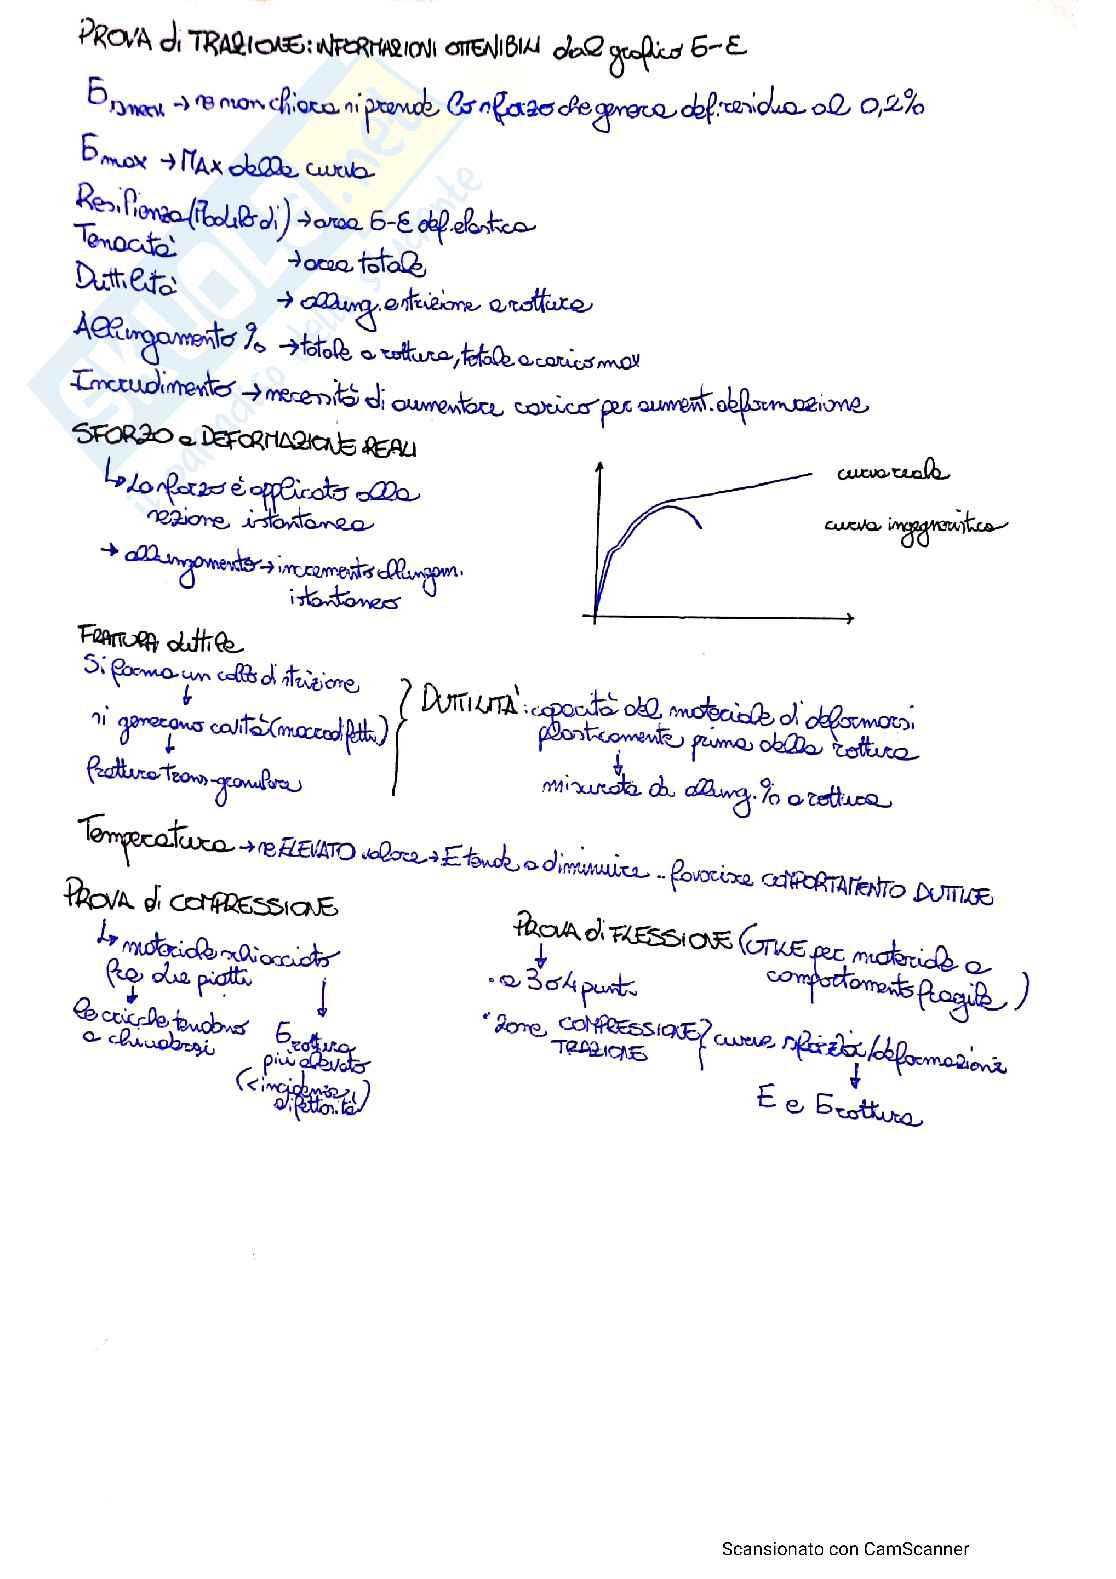 PROVA di TRAZIONE: INFORMAZIONI OTTENIBILI dal grafico σ-ε
→ se non chiara si prende lo sforzo che genera def. residua al 0,2%
σmax → MAX della curva
Resilienza (Modulo di) → area σ-ε def. elastica
Tenacità → area totale
Duttilità → allung. e strizione a rottura
Allungamento % → totale a rottura, totale a carico max
Incrudimento → necessità di aumentare carico per aument. deformazione
SFORZO e DEFORMAZIONE REALI
↳ Lo sforzo è applicato alla
sezione istantanea
→ allungamento → incremento allungam.
istantaneo
curva reale
curva ingegneristica
FRATTURA duttile
Si forma un collo di strizione
↓
si generano cavità (macrodifetti)
↓
frattura trans-granulare
DUTTILITÀ: capacità del materiale di deformarsi
plasticamente prima della rottura
↓
misurata da allung. % a rottura
Temperatura → se ELEVATO valore → E tende a diminuire .. favorisce COMPORTAMENTO DUTTILE
PROVA di COMPRESSIONE
↳ materiale schiacciato
fra due piatti
↓
le cricche tendono
a chiudersi
↓
σrottura
più elevato
(< incidenza
difettosità)
PROVA di FLESSIONE (UTILE per materiale a
comportamento fragile)
↓
• a 3 o 4 punti
• zone COMPRESSIONE
TRAZIONE
curve sforzi/deformazioni
↓
E e σrottura
Scansionato con CamScanner
SKUOLA.net